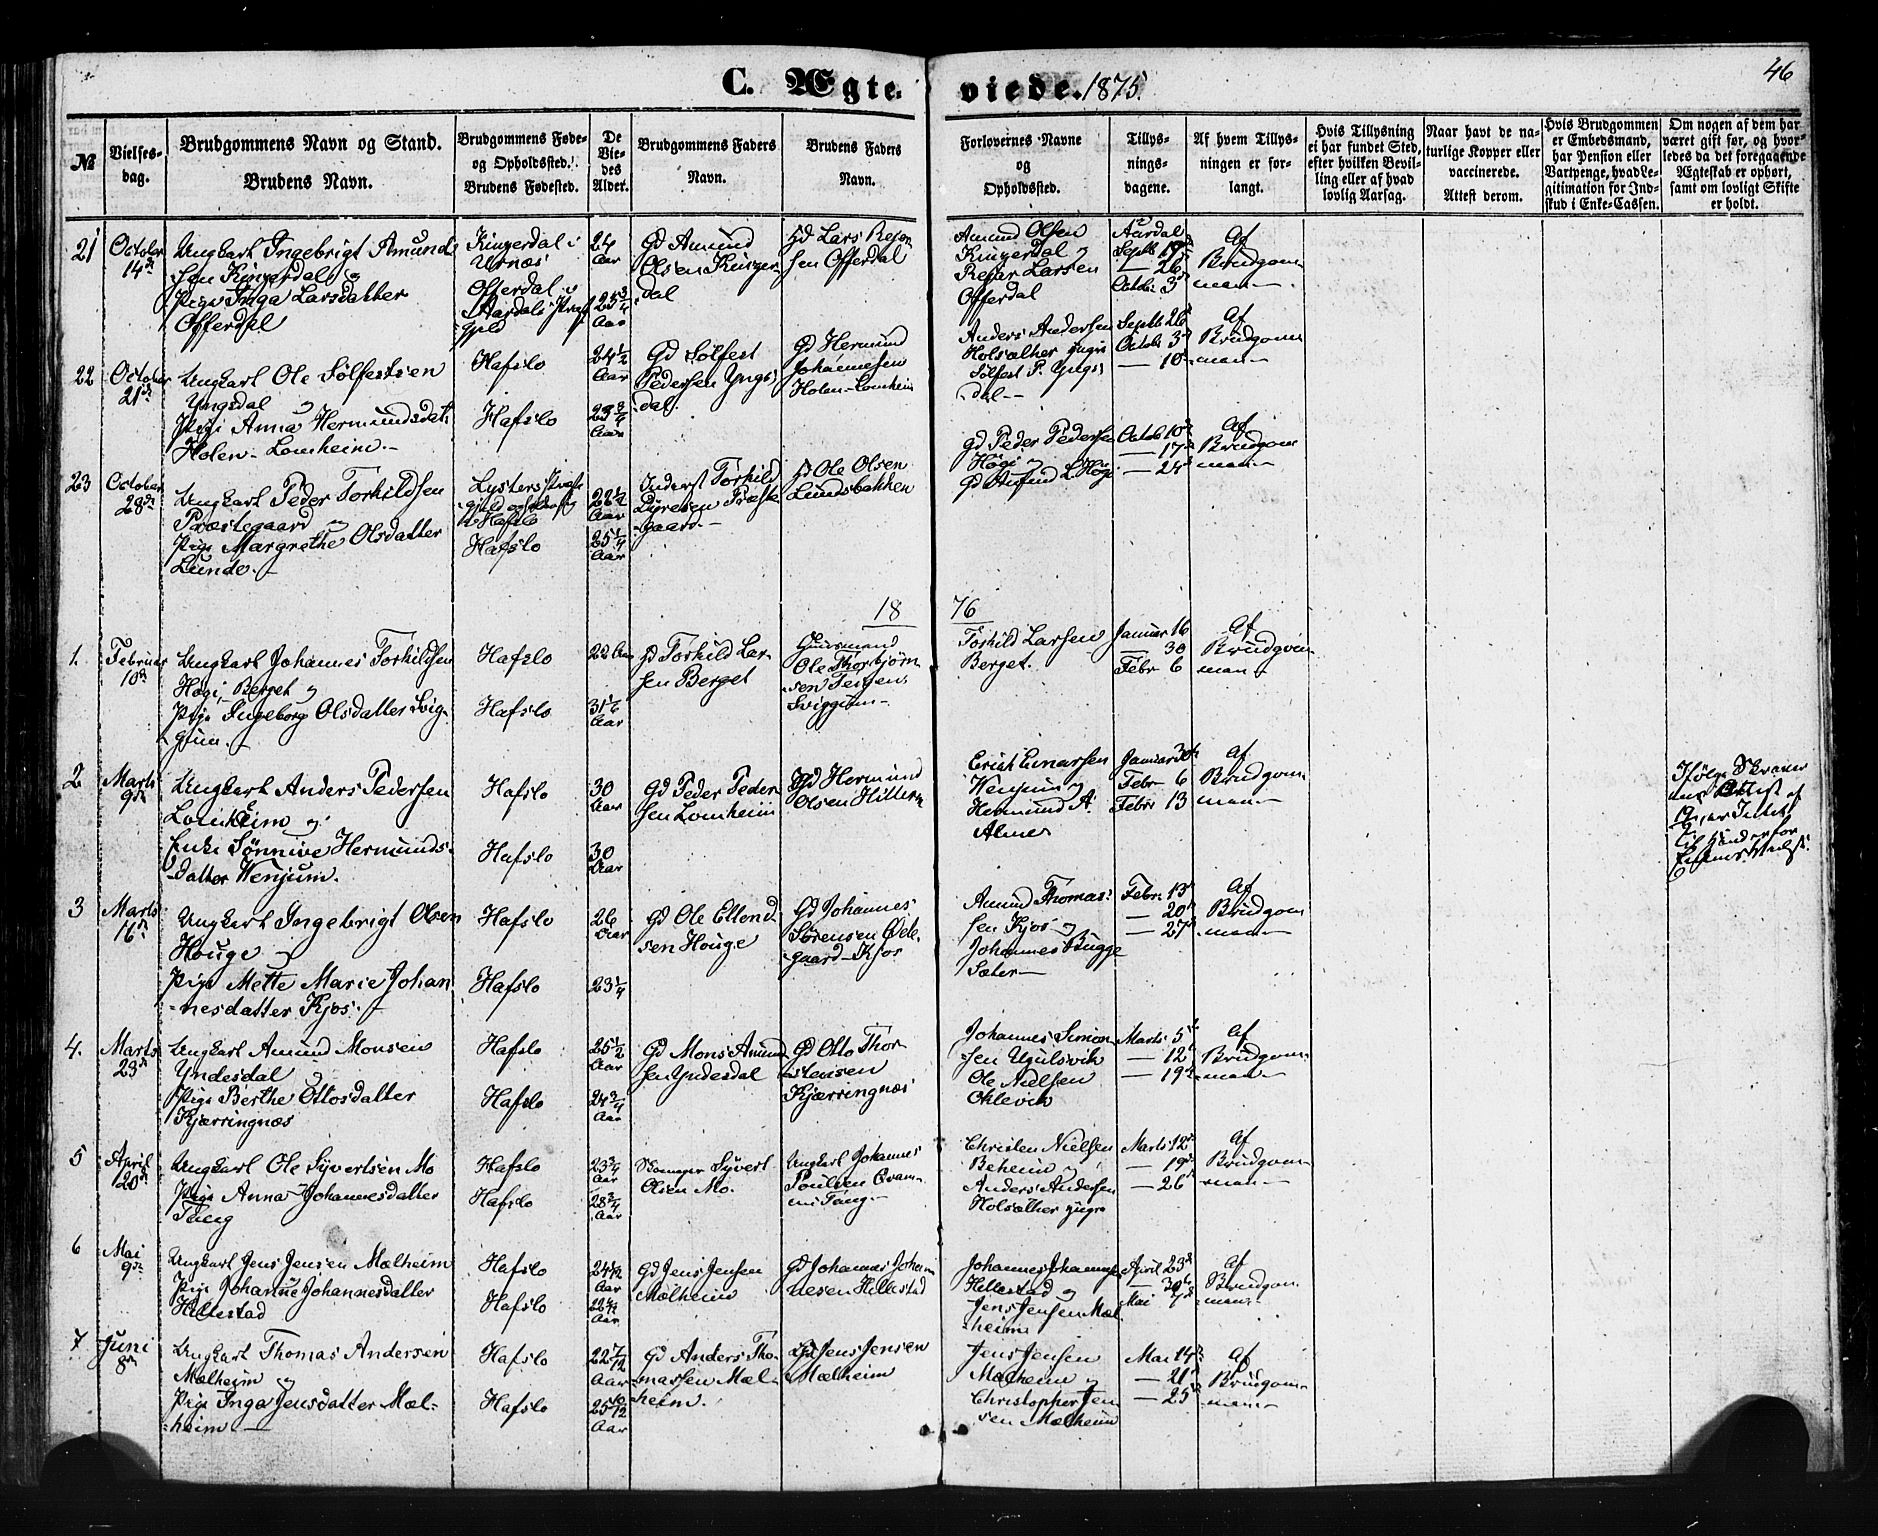 46
C. Ægte-viede. 1875.
№
Vielses-
dag.
Brudgommens Navn og Stand.
Brudens Navn.
Brudgommens Føde-
og Opholdssted.
Brudens Fødested.
De
Vie-
des
Alder.
Brudgommens Faders
Navn.
Brudens Faders
Navn.
Forlovernes Navne
og
Opholdssted.
Tillys-
nings-
dagene.
Af hvem Tillys-
ningen er for-
langt.
Hvis Tillysning
ei har fundet Sted,
efter hvilken Bevil-
ling eller af hvad
lovlig Aarsag.
Naar havt de na-
turlige Kopper eller
vaccinerede.
Attest derom.
Hvis Brudgommen
er Embedsmand,
har Pension eller
Vartpenge, hvad Le-
gitimation for Ind-
skud i Enke-Cassen.
Om nogen af dem har
været gift før, og hvor-
ledes da det foregaaende
Ægteskab er ophørt,
samt om lovligt Skifte
er holdt.
21
October
14de
Ungkarl Ingebrigt Amund-
sen Kingerdal og
Pige Inga Larsdatter
Offerdal
Kingerdal i
Urnæs
Offerdal i
Aardals Præste-
gjeld
24
Aar
25 3/4
Aar
Gd Amund
Olsen Kinger-
dal
Gd Lars Refar-
sen Offerdal
Amund Olsen
Kingerdal og
Refar Larsen
Offerdal
Aardal
Septb 19de
— 26
Octobr 3de
Af
Brudgom-
man
22
October
21de
Ungkarl Ole Sølfestsen
Yngsdal og
Pige Anna Hermundsdat.
Holen-Lomheim
Hafslo
Hafslo
24 1/2
Aar
23 3/4
Aar
Gd Sølfest
Pedersen Yngs-
dal
Gd Hermund
Johannesen
Holen-Lomheim
Anders Andersen
Holsæther
Sølfest P. Yngs-
dal
Septb 26
Octobr 3
— 10
Af
Brudgom-
man
23
October
28de
Ungkarl Peder Torkildsen
Præstegaard og
Pige Margrethe Olsdatter
Lunde
Lysters Præste-
gjeld
Hafslo
Hafslo
22 1/2
Aar
25 1/4
Aar
Inderst Torkild
Præste-
gaard
Gd Ole Olsen
Lundsbakken
Gd Peder Pedersen
Høgi og
Gd L. Høgi
Octob 10
— 17
— 24
Af
Brudgom-
man
1876
1.
Februar
10de
Ungkarl Johannes Torkildsen
Høgi, Berget og
Pige Ingeborg Olsdatter Svig-
gum
Hafslo
Hafslo
22 Aar
31 1/6
Aar
Gd Torkild Lar-
sen Berget
Huusmand
Ole Thorbjørn-
sen
Sviggum
Torkild Larsen
Berget.
Januar 16
30
Febr 6
Af
Brudgom-
man
2
Marts
9de
Ungkarl Anders Pedersen
Lomheim og
Enke Sønnive Hermunds-
datter Wenjum.
Hafslo
Hafslo
30
Aar
30
Aar
Gd Peder Peder-
sen Lomheim
Gd Hermund
Olsen Hilleren
Erick Einarsen
Wenjum og
Hermund A.
Alme
Januar 30te
Febr 6
Febr 13
Af
Brudgom-
man
3
Marts
16de
Ungkarl Ingebrigt Olsen
Houge og
Pige Mette Marie Johan-
nesdatter Kjos
Hafslo
Hafslo
26
Aar
23 1/4
Gd Ole Ellend-
sen Houge
Gd Johannes
Sørensen Øde-
gaard-Kjos
Amund Thomas-
sen Kjos og
Johannes Bugge
Sæter
Febr 13
— 20
— 27
Af
Brudgom
man
4.
Marts
23de
Ungkarl Amund Monsen
Yndesdal og
Pige Berthe Ottosdatter
Kjærringnæs
Hafslo
Hafslo
25 1/2
Aar
24 3/4
Aar
Gd Mons Amund-
sen Yndesdal
Gd Otto Thor-
stensen
Kjærringnæs
Johannes Simon-
sen Ugulsvik
Ole Nielsen
Oklevik
Marts 5
— 12
— 19
Af
Brudgom-
man
5
April
20de
Ungkarl Ole Syvertsen Mo
Pige Anna Johannesdatter
Tang
Hafslo
Hafslo
23 3/4
Aar
28 3/4
Aar
Skomager Syvert
Olsen Mo.
Ungkarl Johannes
Poulsen
Tang
Christen Nielsen
Beheim og
Anders Andersen
Holsæther
Marts 12
— 19
— 26
Af
Brudgom-
man
6
Mai
9de
Ungkarl Jens Jensen Mælheim
Pige Johanne Johannesdatter
Hillestad
Hafslo
Hafslo
Aar
Aar
Gd Jens Jensen
Mælheim
Gd Johannes Johan-
nesen Hillestad
Johannes Johannesen
Hillestad og
Jens Jensen Mæl-
heim
April 23
— 30
Mai 7
Af
Brudgom-
man
7
Juni
8de
Ungkarl Thomas Andersen
Mælheim og
Pige Inga Jensdatter Mæl-
heim
Hafslo
Hafslo
22 7/12
Aar
25 10/12
Aar
Gd Anders Tho-
massen Mæl-
heim.
Gd Jens Jensen
Mælheim
Jens Jensen
Mælheim og
Christopher Jen-
sen Mælheim
Mai 14
— 21
— 25
Af
Brudgom-
man